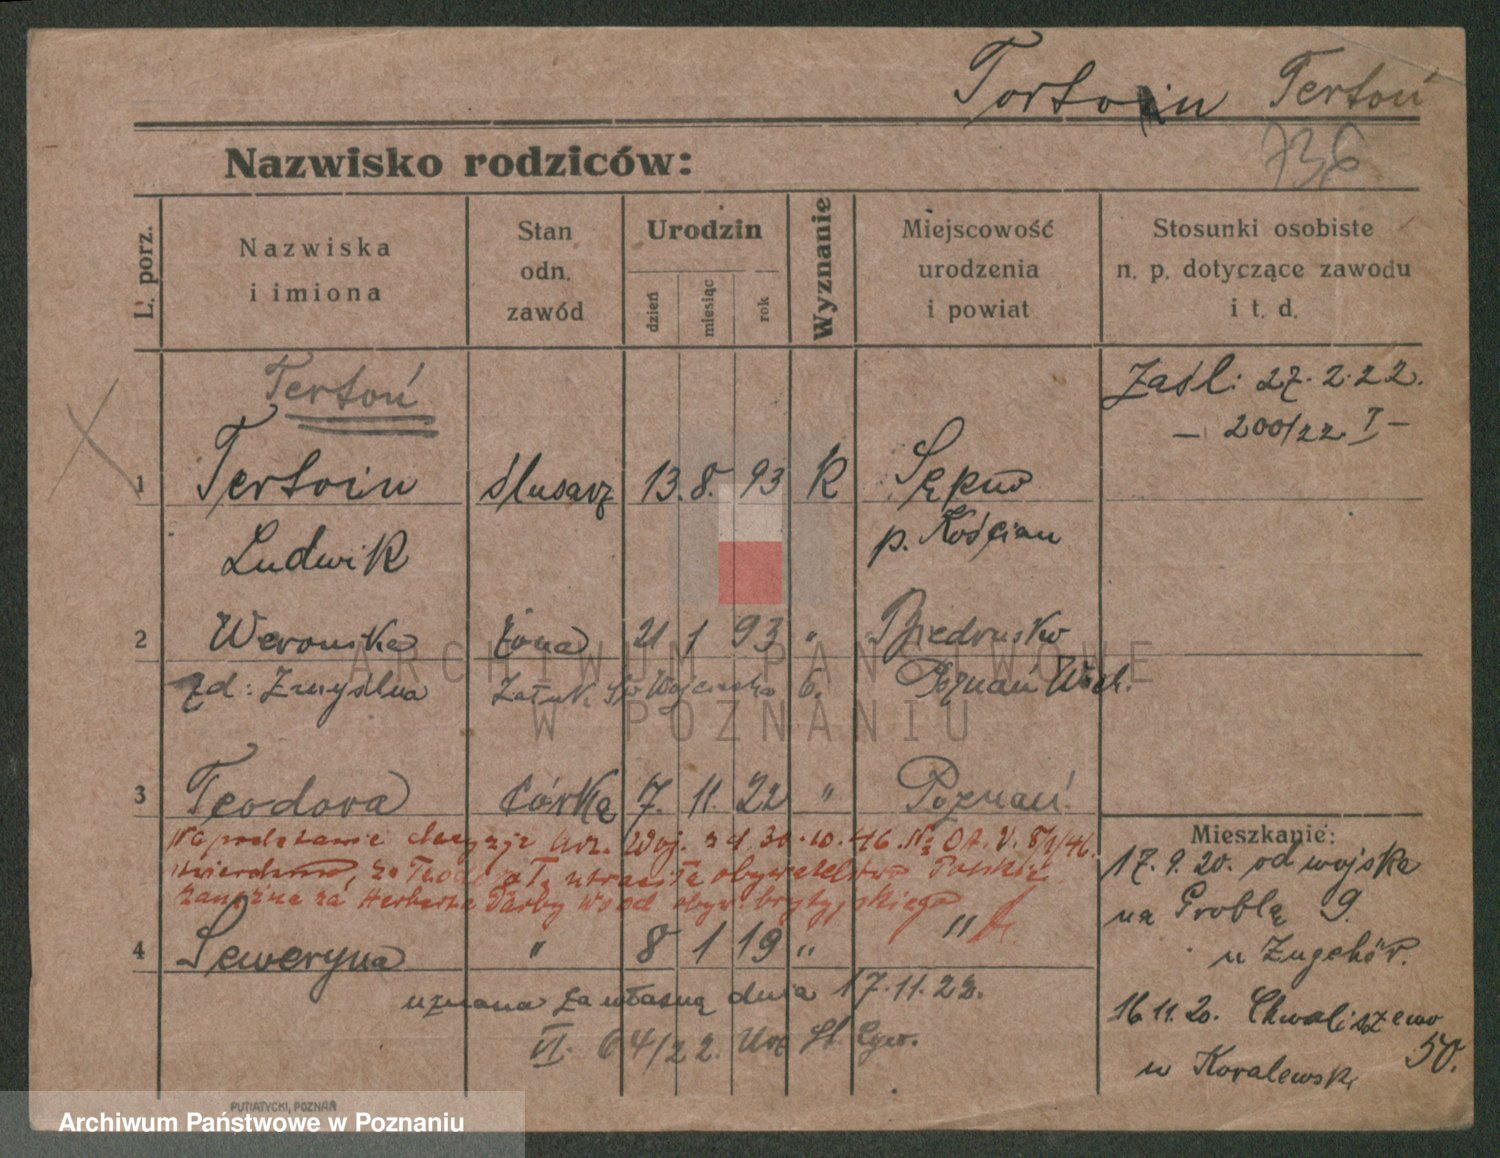 Tortoin Tertoń
736
Nazwisko rodziców:
L. porz.
Nazwiska
i imiona
Stan
odn.
zawód
Urodzin
dzień
miesiąc
rok
Wyznanie
Miejscowość
urodzenia
i powiat
Stosunki osobiste
n. p. dotyczące zawodu
i t. d.
Tertoń
Zaśl. 27.2.22.
— 200/22 I —
1 Tertoin ślusarz 13. 8. 93 K Sępno
Ludwik p. Kościan
2 Weronika żona 21 1 93 " Biedrusko
zd: Zmyślna Poznań Wsch.
3 Teodora córka 7. 11. 22 " Poznań
Na podstawie decyzji Urz. Woj. z d. 30.10.46. Nr OA. V. 8/
stwierdzono, że Teodora utraciła obywatelstwo Polskie
zamężna za Herberta Darby Wood obyw. brytyjskiego
4 Seweryna " 8 1 19 " "
uznana za własną dnia 17.11.22.
VI. 64/22. Urz St. Cyw.
Mieszkanie:
17.9.20. od wojska
na Groblę 9.
u Zugehör.
16.11.20. Chwaliszewo
50.
u Kowalewski
PUTIATYCKI, POZNAŃ
ARCHIWUM PAŃSTWOWE
W POZNANIU
Archiwum Państwowe w Poznaniu